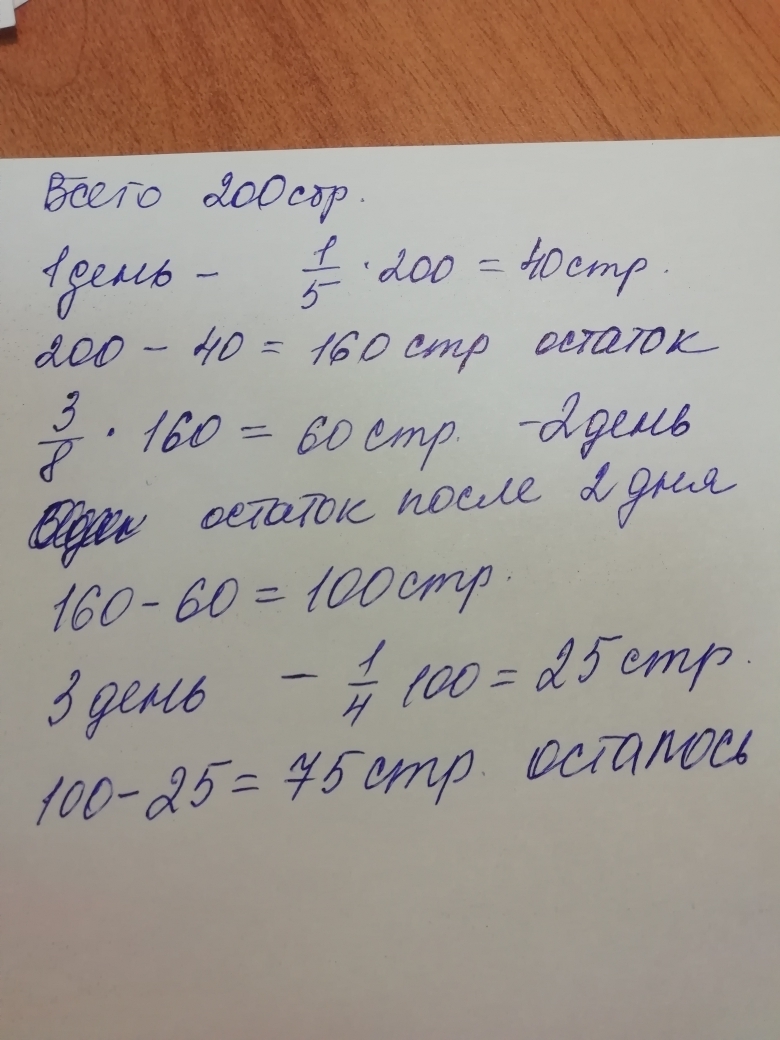 Всего 200 стр.
1 день - 1/5 · 200 = 40 стр.
200 - 40 = 160 стр остаток
3/8 · 160 = 60 стр. - 2 день
остаток после 2 дня
160 - 60 = 100 стр.
3 день - 1/4 100 = 25 стр.
100 - 25 = 75 стр. осталось